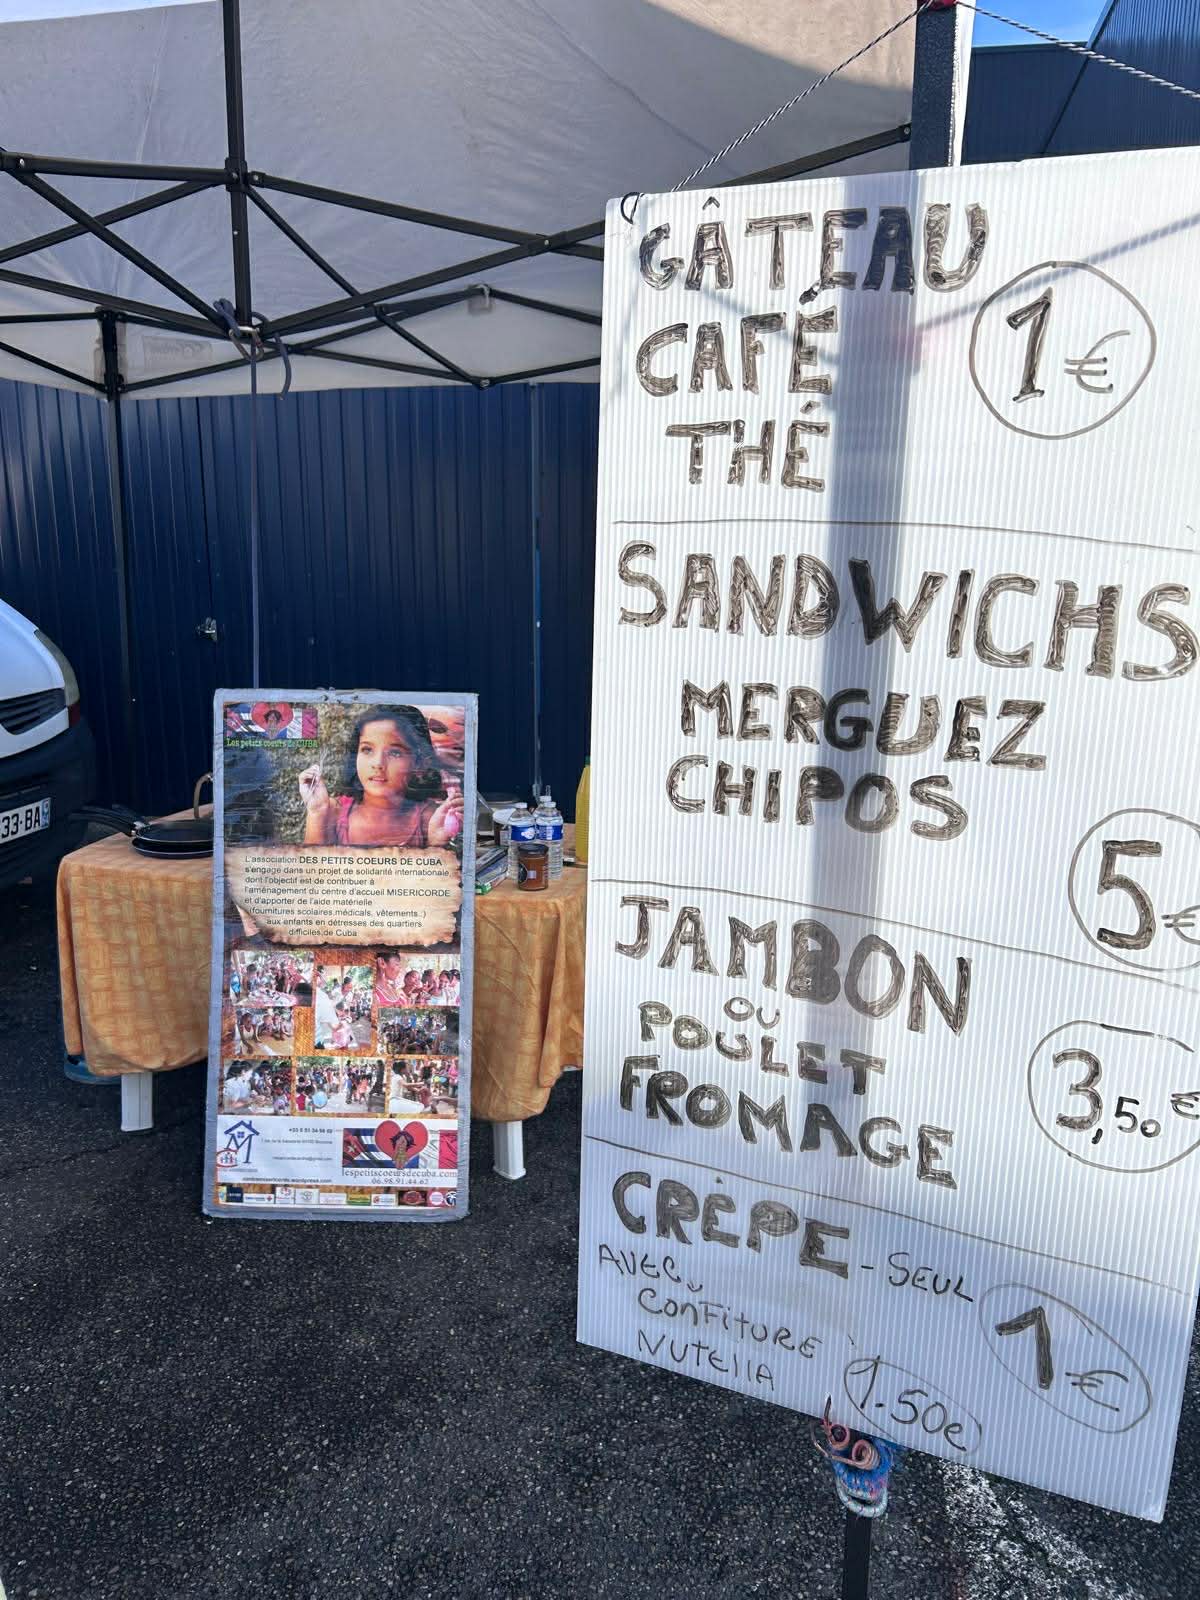 GÂTEAU
CAFÉ
THÉ
1€
SANDWICHS
MERGUEZ
CHIPOS
5€
JAMBON
OU
POULET
FROMAGE
3,50€
CRÈPE - SEUL
1€
AVEC
CONFITURE
NUTELLA
1.50€
Les petits coeurs de CUBA
L'association DES PETITS COEURS DE CUBA
s'engage dans un projet de solidarité internationale,
dont l'objectif est de contribuer à
l'aménagement du centre d'accueil MISERICORDE
et d'apporter de l'aide matérielle
(fournitures scolaires,médicals, vêtements..)
aux enfants en détresses des quartiers
difficiles,de Cuba
lespetitscoeursdecuba.com
06.98.91.44.62
33-BA